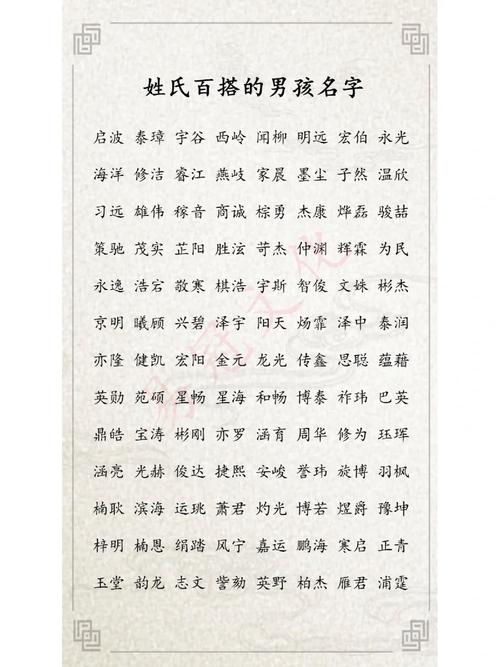 姓氏百搭的男孩名字
启波 泰璋 宇谷 西岭 闻柳 明远 宏伯 永光
海洋 修洁 睿江 燕岐 家晨 墨尘 子然 温欣
习远 雄伟 稼音 商诚 棕勇 杰康 烨磊 骏喆
策驰 茂实 芷阳 胜泫 苛杰 仲渊 辉霖 为民
永逸 浩宕 敬寒 棋浩 宇斯 智俊 文姝 彬杰
京明 曦顾 兴碧 泽宇 阳天 炀霏 泽中 泰润
亦隆 健凯 宏阳 金元 龙光 传鑫 思聪 蕴藉
英勋 苑硕 星畅 星海 和畅 博泰 祚玮 巴英
鼎皓 宝涛 彬刚 亦罗 涵育 周华 修为 珏珲
涵亮 光赫 俊达 捷熙 安峻 誉玮 旋博 羽枫
楠耿 滨海 运珧 萧君 灼光 博若 煜爵 豫坤
梓明 楠恩 绢踏 风宁 嘉运 鹏海 寒启 正青
玉堂 韵龙 志文 訾劾 英野 柏杰 雁君 浦霆